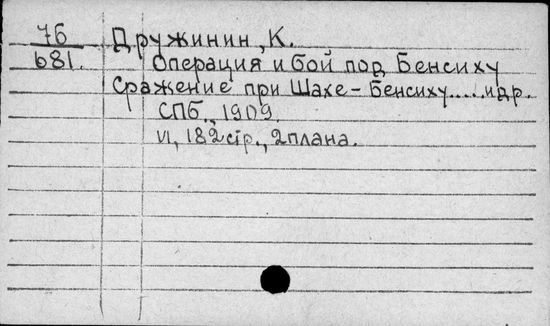 76 Дружинин, К.
681. Операция и бой под Бенсиху
Сражение при Шахе-Бенсиху.....и др.
СПб., 1909.
VI, 182 стр., 2 плана.